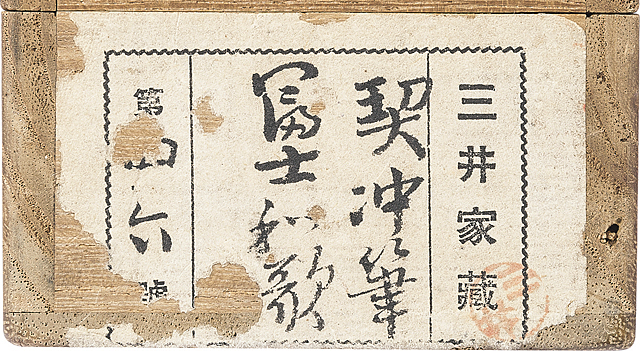 三井家藏
契沖筆
冨士和歌
第四六號